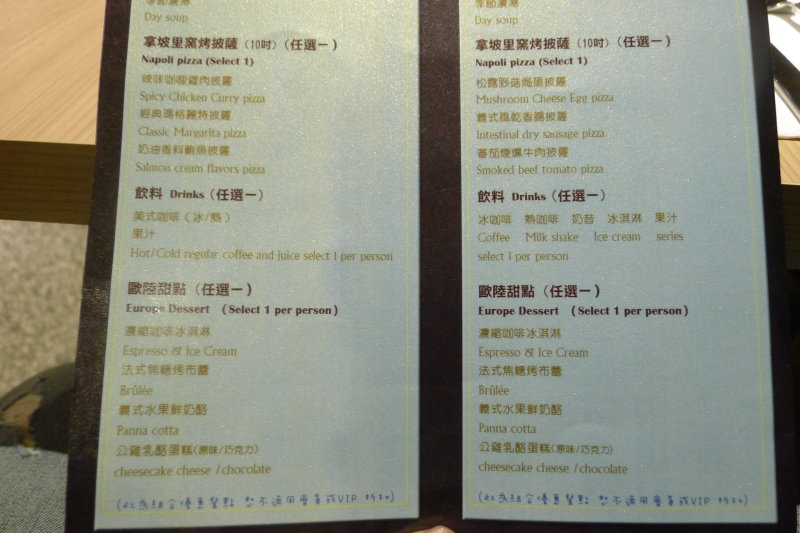 季節濃湯
Day soup
拿坡里窯烤披薩（10吋）（任選一）
Napoli pizza (Select 1)
辣味咖哩雞肉披薩
Spicy Chicken Curry pizza
經典瑪格麗特披薩
Classic Margarita pizza
奶油香料鮭魚披薩
Salmon cream flavors pizza
飲料 Drinks（任選一）
美式咖啡（冰/熱）
果汁
Hot/Cold regular coffee and juice select 1 per person
歐陸甜點（任選一）
Europe Dessert （Select 1 per person）
濃縮咖啡冰淇淋
Espresso & Ice Cream
法式焦糖烤布蕾
Brûlée
義式水果鮮奶酪
Panna cotta
公雞乳酪蛋糕(原味/巧克力)
cheesecake cheese /chocolate
(此為組合優惠餐點 恕不適用會員或VIP 折扣)
季節濃湯
Day soup
拿坡里窯烤披薩（10吋）（任選一）
Napoli pizza (Select 1)
松露野菇焗蛋披薩
Mushroom Cheese Egg pizza
義式風乾香腸披薩
Intestinal dry sausage pizza
蕃茄煙燻牛肉披薩
Smoked beef tomato pizza
飲料 Drinks（任選一）
冰咖啡 熱咖啡 奶昔 冰淇淋 果汁
Coffee Milk shake Ice cream series
select 1 per person
歐陸甜點（任選一）
Europe Dessert （Select 1 per person）
濃縮咖啡冰淇淋
Espresso & Ice Cream
法式焦糖烤布蕾
Brûlée
義式水果鮮奶酪
Panna cotta
公雞乳酪蛋糕(原味/巧克力)
cheesecake cheese /chocolate
(此為組合優惠餐點 恕不適用會員或VIP 折扣)